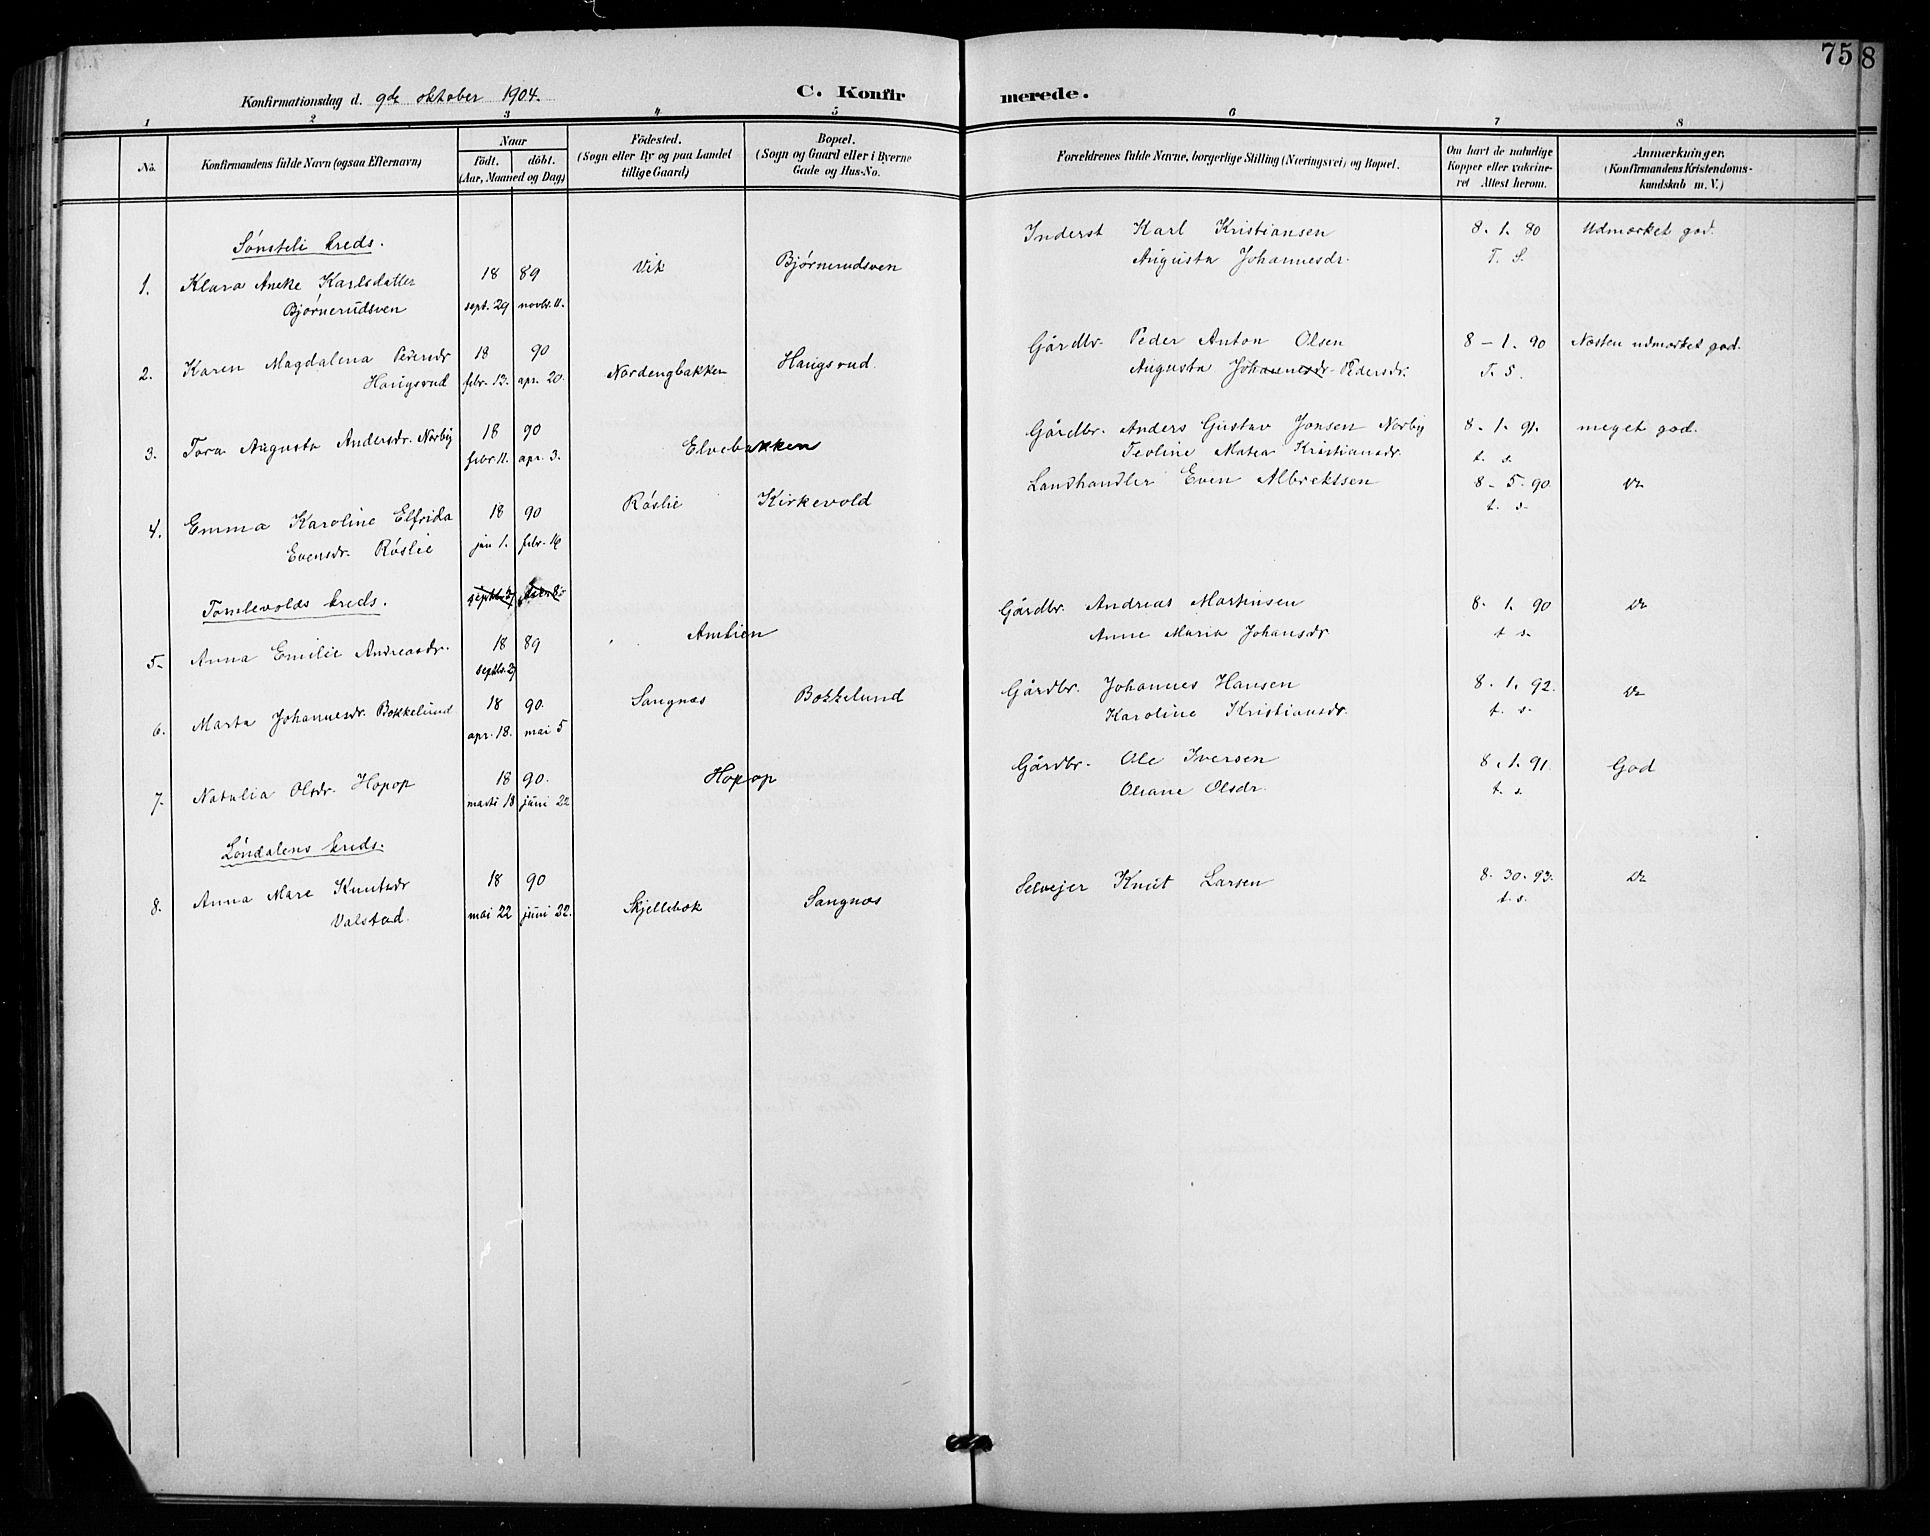 75
8
Konfirmationsdag d. 9de oktober 1904.
C. Konfirmerede.
1 2 3 4 5 6 7 8
No.
Konfirmandens fulde Navn (ogsaa Efternavn)
Naar
födt. döbt.
(Aar, Maaned og Dag)
Födested.
(Sogn eller By og paa Landet
tillige Gaard)
Bopæl.
(Sogn og Gaard eller i Byerne
Gade og Hus-No.
Forældrenes fulde Navne, borgerlige Stilling (Næringsvei) og Bopæl.
Om havt de naturlige
Kopper eller vakcine-
ret Attest herom.
Anmærkninger.
(Konfirmandens Kristendoms-
kundskab m. V.)
Sønsteli kreds.
1. Klara Aneke Karlsdatter
Bjørnerudsven
18 89
sept. 29 novbr. 11.
Vik
Bjørnerudsven
Inderst Karl Kristiansen
Augusta Johannesdr.
8. 1. 80
T. S.
Udmærket god.
2. Karen Magdalena Pedersdr
Haugsrud
18 90
febr. 13. apr. 20.
Nordengbakken
Haugsrud.
Gårdbr. Peder Anton Olsen
Augusta Johannesdr. Pedersdr.
8 - 1. 90
T. S.
Næsten udmærket god.
3. Tora Augusta Andersdr. Norby
18 90
febr 11. apr. 3.
Elvebakken
Gårdbr. Anders Gustav Jonsen Norby
Teoline Matea Kristiansdr.
8. 1. 91.
t. s.
meget god.
4. Emma Karoline Elfrida
Evensdr. Røslie
18 90
jan 1. febr. 16
Røslie
Kirkevold
Landhandler Even Albrektsen
8 - 5. 90
t. s.
Do
Tomlevolds kreds.
septbr. 27
5. Anna Emilie Andreasdr.
18 89
septbr. 27
Amlien
Gårdbr. Andreas Martinsen
Anne Maria Johansdr
8. 1. 90
t s.
Do
6. Marta Johannesdr. Bokkelund
18 90.
apr. 18. mai 5
Sangnæs
Bokkelund
Gårdbr. Johannes Hansen
Karoline Kristiansdr.
8. 1. 92.
t. s.
Do
7. Natalia Olsdr. Hopop
18 90.
marts 18 juni 22
Hopop
Gårdbr. Ole Iversen
Oliane Olsdr.
8. 1. 91.
t. s.
God
Løndalens kreds.
8. Anna Mare Knutsdr
Valstad.
18 90
mai 22 juni 22.
Skjellebæk
Sangnæs
Selvejer Knut Larsen
8. 30. 93.
t. s.
Do